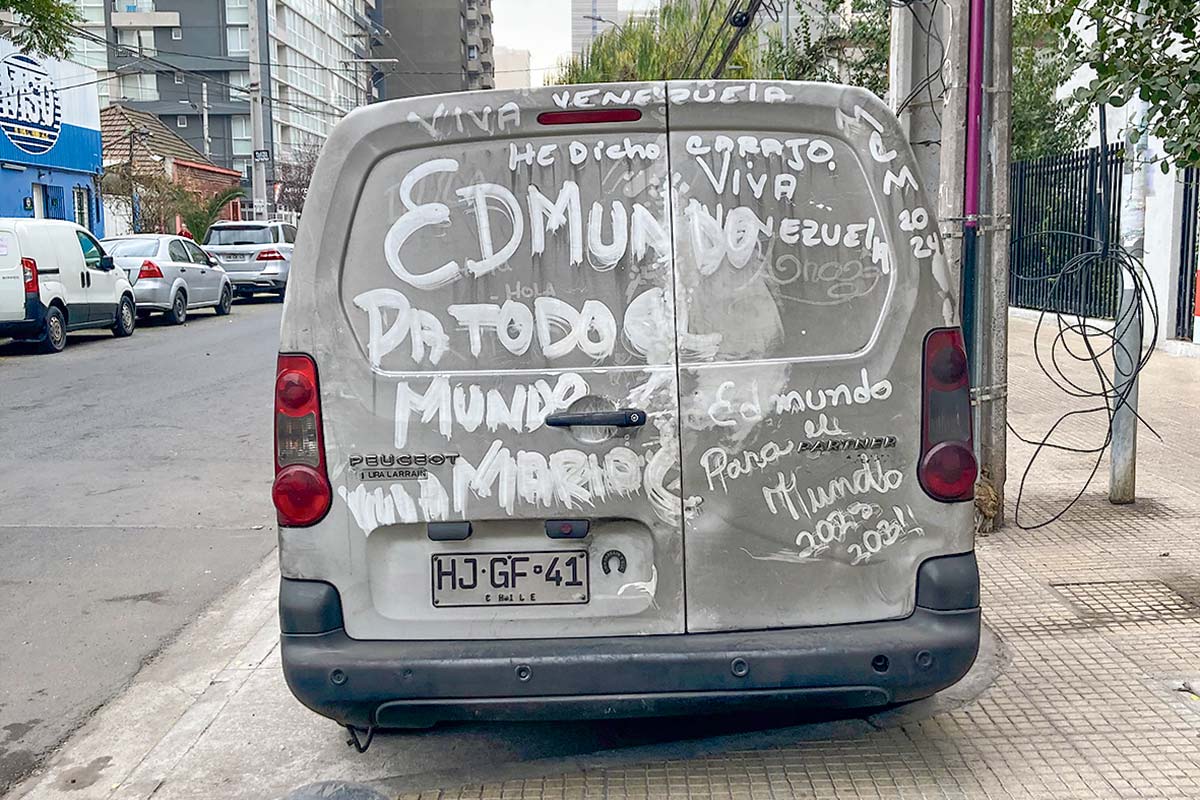 VIVA VENEZUELA
HE DicHo CARAJO.
MCM
2024
EDMUNDO
VIVA
VENEZUELA
HOLA
PA TODO EL
MUNDO
Edmundo
Para el
Mundo
PEUGEOT
URA LARRAIN
PARTNER
VIVA MARIA C
HJ·GF·41
CHILE